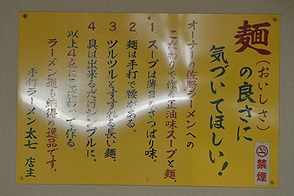 麺(おいしさ)の良さに
気づいてほしい!
禁煙
オーナーの佐野ラーメンへの
こだわりで作る正油味スープと麺、
1 スープは薄目のさっぱり味、
2 麺は手打で腰がある、
3 ツルツルとすすれる長い麺、
4 具は出来るだけシンプルに、
以上4点にこだわって作る
ラーメン通も納得の逸品です。
手打ラーメン太七 店主